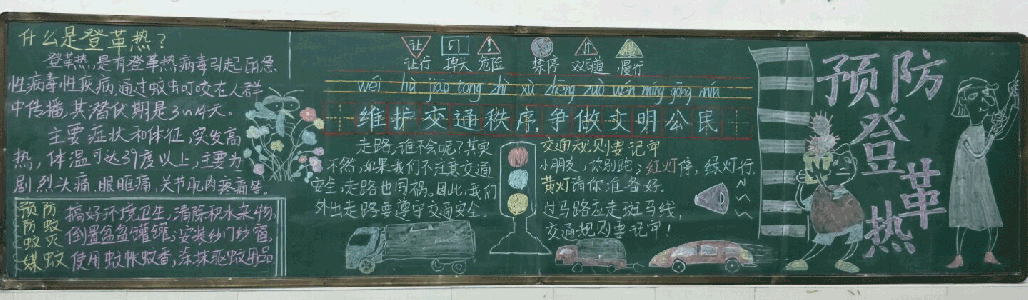 什么是登革热?
登革热,是有登革热病毒引起的急
性病毒性疾病,通过蚊虫叮咬在人群
中传播,其潜伏期是3~14天。
主要症状和体征,突发高
热,体温可达39度以上,主要为
剧烈头痛、眼眶痛、关节肌肉疼痛等。
预防 防蚊 灭蚊
搞好环境卫生,清除积水杂物,
倒置盆盆罐罐,安装纱门纱窗,
使用蚊帐蚊香,涂抹驱蚊用品
让 行人 危险 禁停 双弯道 慢行
让行
wéi hù jiāo tōng zhì xù zhēng zuò wén míng gōng mín
维护交通秩序,争做文明公民
走路,谁不会呢?其实
不然,如果我们不注意交通
安全,走路也闯祸。因此,我们
外出走路要遵守交通安全。
交通规则要记牢
小朋友,你别跑,红灯停,绿灯行,
黄灯请你准备好。
过马路应走斑马线,
交通规则要记牢!
预防
登
革
热